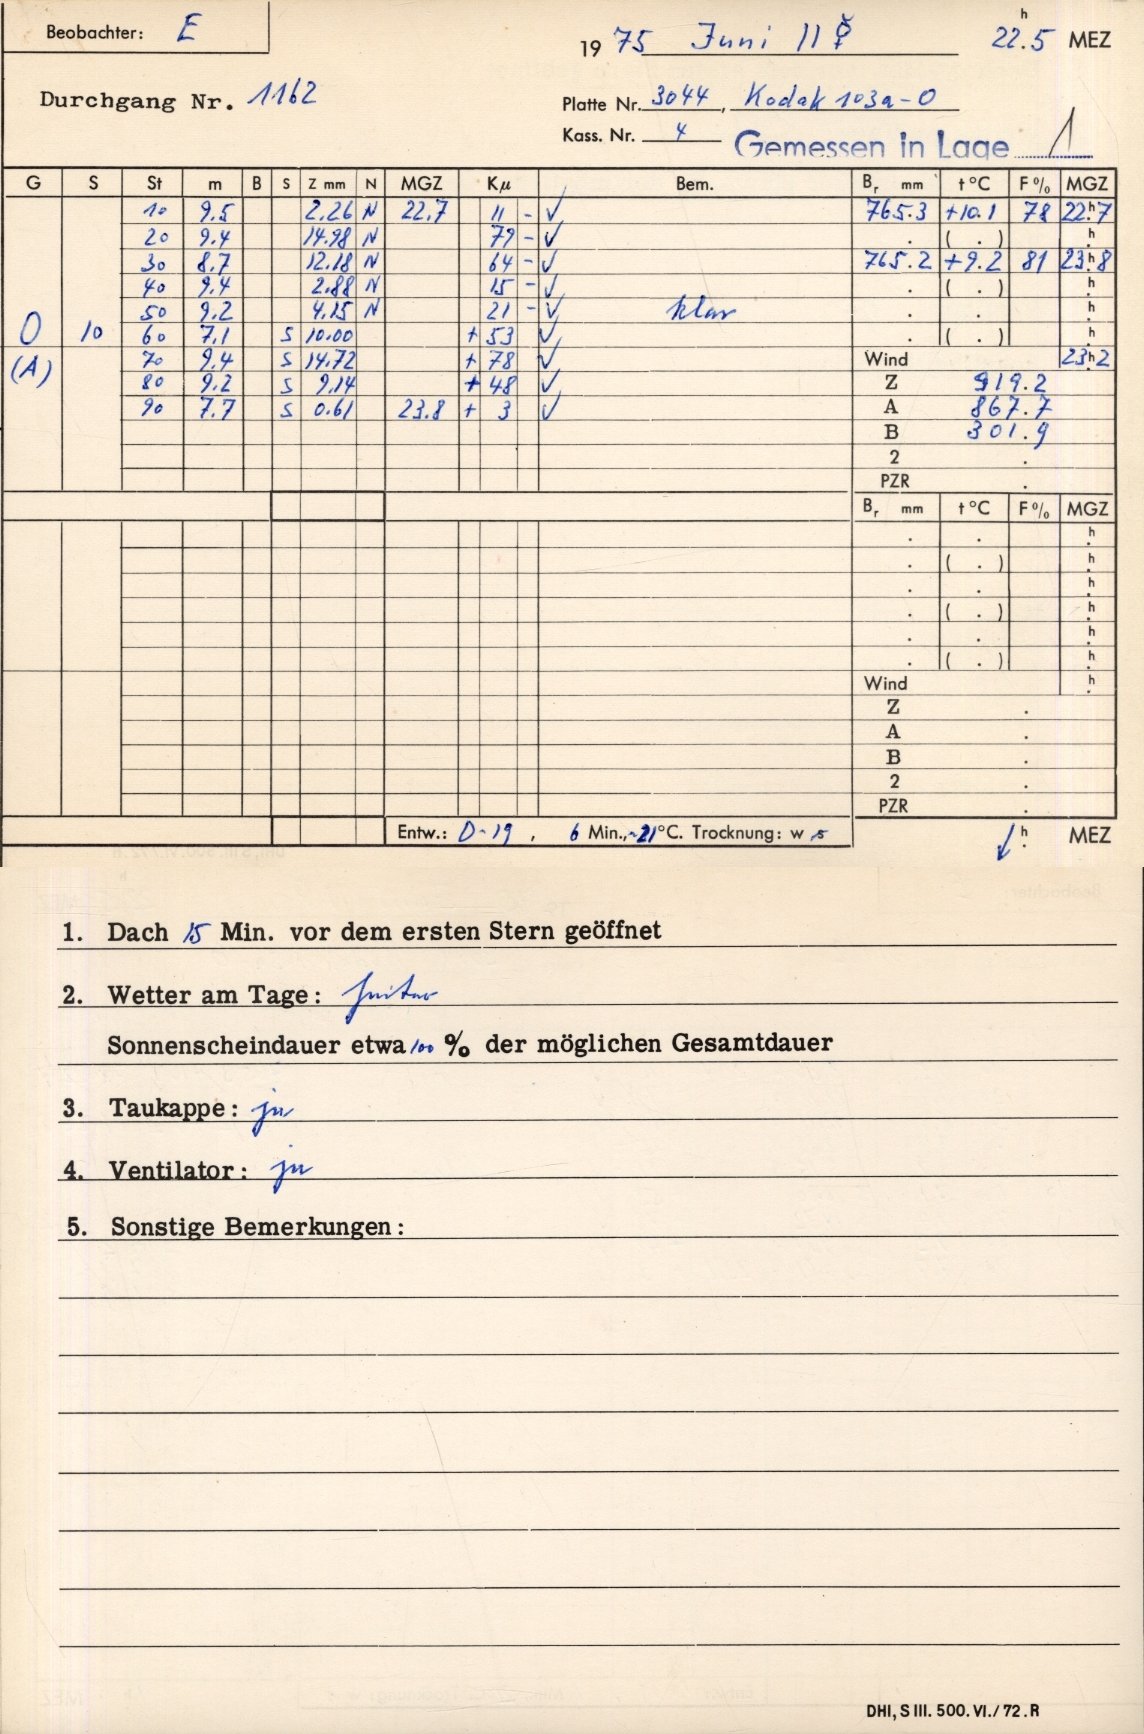 Beobachter: E
1975 Juni 11 ☿ 22h.5 MEZ
Durchgang Nr. 1162
Platte Nr. 3044, Kodak 103a-O
Kass. Nr. 4 Gemessen in Lage 1
G S St m B S Z mm N MGZ Kµ Bem. Br mm t °C F % MGZ
10 9.5 2.26 N 22.7 11 - ✓ 765.3 +10.1 78 22h.7
20 9.4 14.98 N 79 - ✓ . ( . ) h.
30 8.7 12.18 N 64 - ✓ 765.2 +9.2 81 23h.8
40 9.4 2.88 N 15 - ✓ . ( . ) h.
50 9.2 4.15 N 21 - ✓ klar . . h.
O 10 60 7.1 S 10.00 + 53 ✓ . ( . ) h.
(A) 70 9.4 S 14.72 + 78 ✓ Wind 23h.2
80 9.2 S 9.14 + 48 ✓ Z 919.2
90 7.7 S 0.61 23.8 + 3 ✓ A 867.7
B 301.9
2 .
PZR .
Br mm t °C F % MGZ
. . h.
. ( . ) h.
. . h.
. ( . ) h.
. . h.
. ( . ) h.
Wind h.
Z .
A .
B .
2 .
PZR .
Entw.: D-19, 6 Min., ~21°C. Trocknung: w s ✓ h. MEZ
1. Dach 15 Min. vor dem ersten Stern geöffnet
2. Wetter am Tage: heiter
Sonnenscheindauer etwa 100 % der möglichen Gesamtdauer
3. Taukappe: ja
4. Ventilator: ja
5. Sonstige Bemerkungen:
DHI, S III. 500. VI./72. R